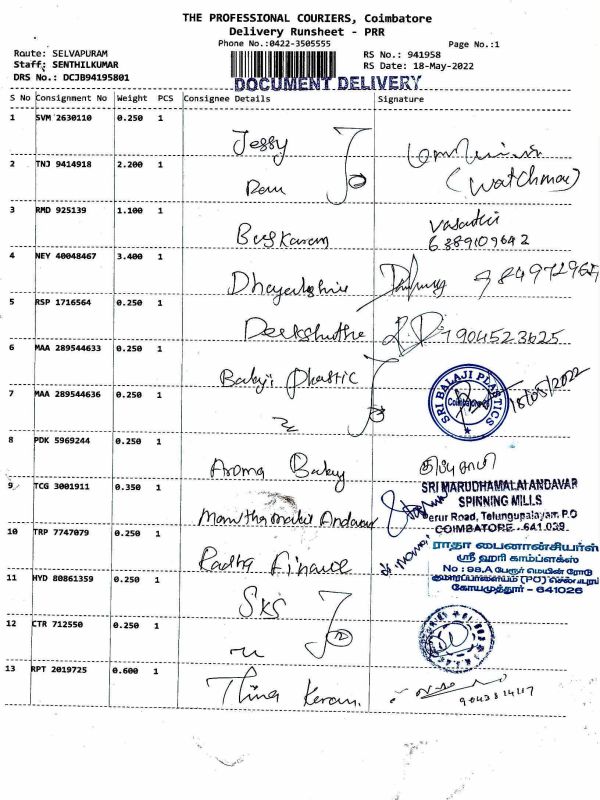 THE PROFESSIONAL COURIERS, Coimbatore
Delivery Runsheet - PRR
Phone No.:0422-3505555
Page No.:1
Route: SELVAPURAM
RS No.: 941958
Staff: SENTHILKUMAR
RS Date: 18-May-2022
DRS No.: DCJB94195801
DOCUMENT DELIVERY
S No Consignment No Weight PCS Consignee Details Signature
1 SVM 2630110 0.250 1 Jessy
2 TNJ 9414918 2.200 1 Ram (Watchman)
3 RMD 925139 1.100 1 6389109642
4 NEY 40048467 3.400 1
5 RSP 1716564 0.250 1 7904523625
6 MAA 289544633 0.250 1 Balaji Plastic
SRI BALAJI PLASTICS
Coimbatore
18/05/2022
7 MAA 289544636 0.250 1
8 PDK 5969244 0.250 1 Aroma
9 TCG 3001911 0.350 1
SRI MARUDHAMALAI ANDAVAR
SPINNING MILLS
Perur Road, Telungupalayam P.O
COIMBATORE - 641 039.
10 TRP 7747079 0.250 1 Radha Finance
ராதா பைனான்சியர்ஸ்
ஸ்ரீ ஹரி காம்ப்ளக்ஸ்
No : 98A பேரூர் மெயின் ரோடு
குமாரபாளையம் (PO) செல்வபுரம்
கோயமுத்தூர் - 641026
11 HYD 80861359 0.250 1 SKS
12 CTR 712550 0.250 1
13 RPT 2019725 0.600 1